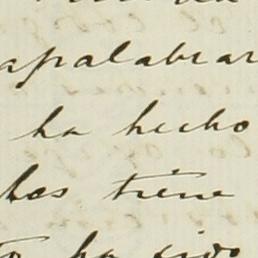 apalabrar
ha hecho
hos tiene
ha sido